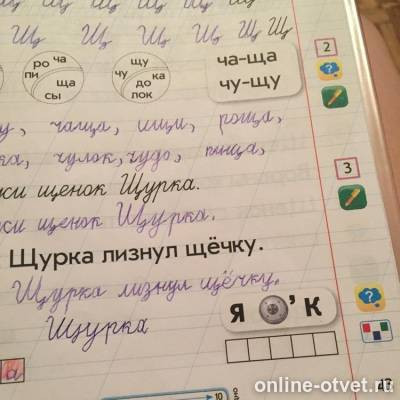 Щ Щ Щ Щ Щ Щ
ро ча
пи ща
сы
щу
чу ка
до
лок
ча-ща
чу-щу
2
чаща, ищи, роща,
ка, чулок, чудо, пища,
3
ки щенок Щурка.
ки щенок Щурка.
Щурка лизнул щёчку.
Щурка лизнул щёчку.
Щурка
Я ’ К
а
10
online-otvet.ru